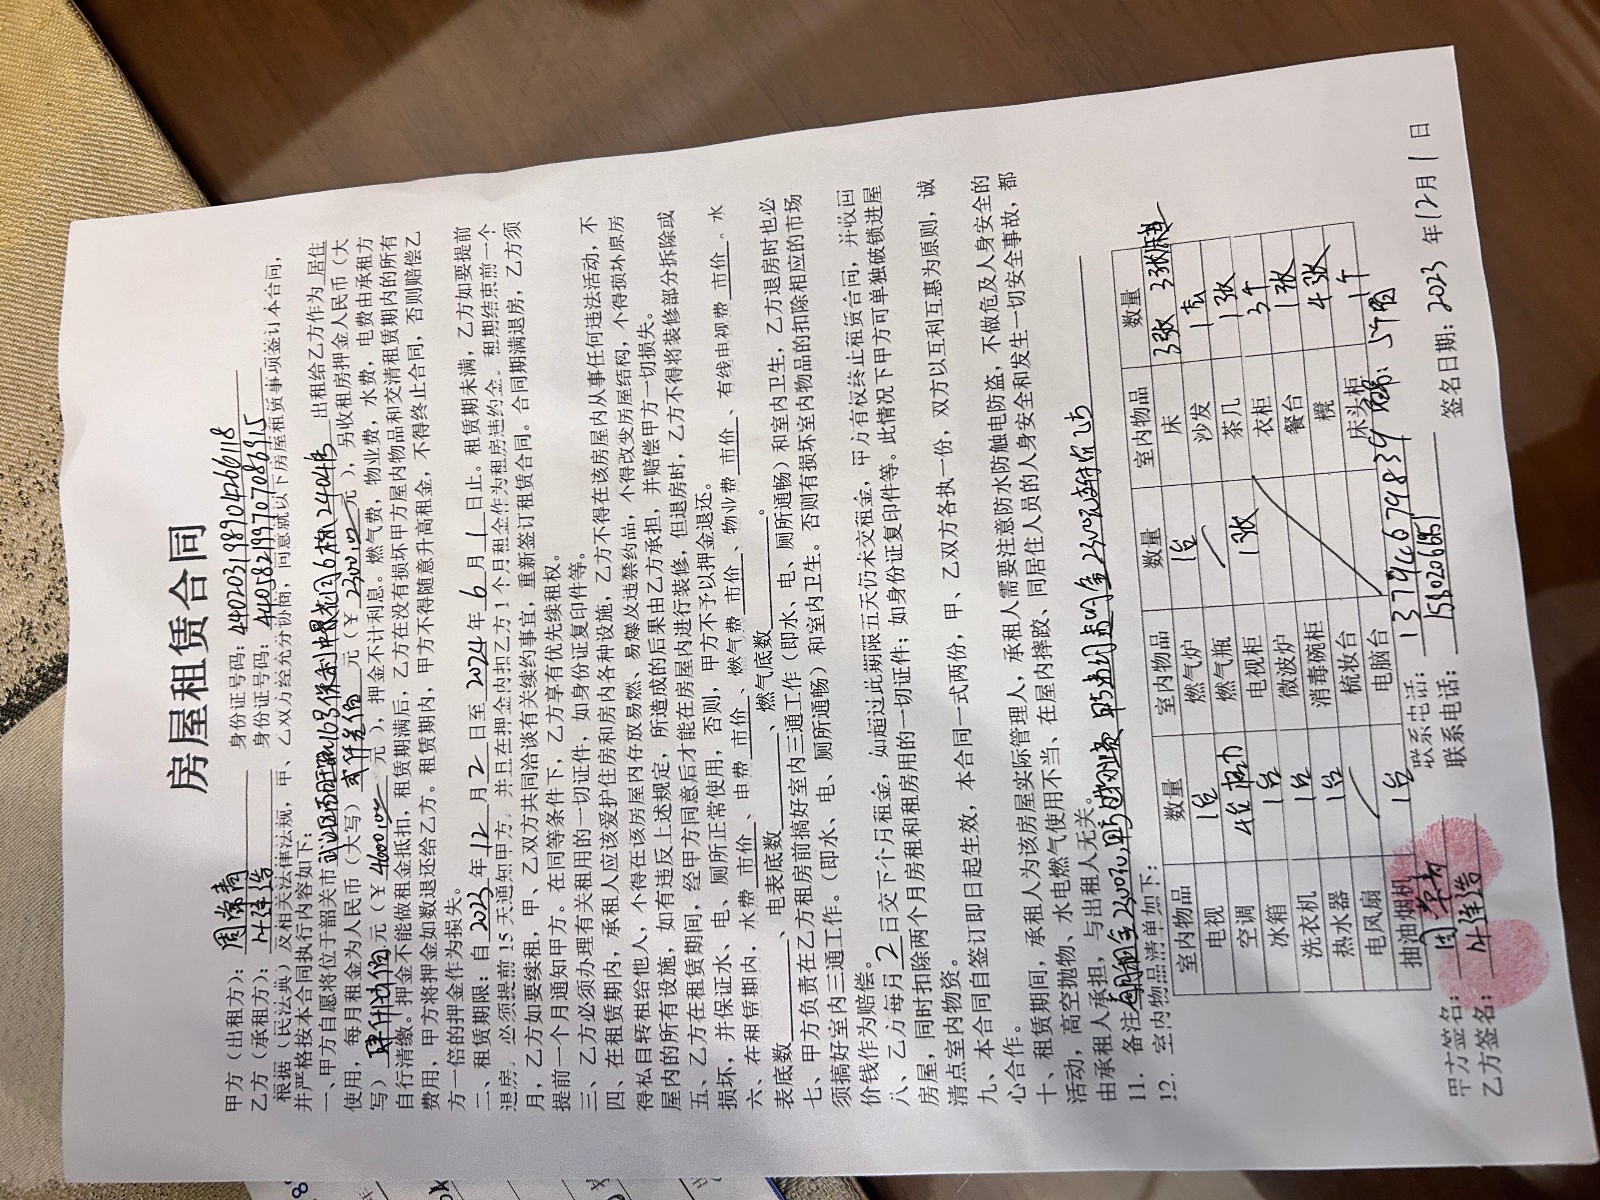 房屋租赁合同
甲方（出租方）： 身份证号码：440203198904026118
乙方（承租方）： 身份证号码：440582199707086915
根据（民法典）及相关法律法规，甲、乙双方经充分协商，同意就以下房屋租赁事项签订本合同，
并严格按本合同执行内容如下：
一、甲方自愿将位于韶关市武江区 16号保利中景花园6栋2404房 出租给乙方作为 居住
使用，每月租金为人民币（大写）贰仟叁佰 元（￥2300.00 元），另收租房押金人民币（大
写）肆仟陆佰元（￥4600.00 元），押金不计利息。燃气费，物业费，水费，电费由承租方
自行清缴。押金不能做租金抵扣，租赁期满后，乙方在没有损坏甲方屋内物品和交清租赁期内的所有
费用，甲方将押金如数退还给乙方。租赁期内，甲方不得随意升高租金，不得终止合同，否则赔偿乙
方一倍的押金作为损失。
二、租赁期限：自 2023 年 12 月 2 日至 2024 年 6 月 1 日止。租赁期未满，乙方如要提前
退房，必须提前 15 天通知甲方，并且在押金内扣乙方 1 个月租金作为租房违约金。租期结束前一个
月，乙方如要续租，甲、乙双方共同洽谈有关续约事宜，重新签订租赁合同。合同期满退房，乙方须
提前一个月通知甲方。在同等条件下，乙方享有优先续租权。
三、乙方必须办理有关租用的一切证件，如身份证复印件等。
四、在租赁期内，承租人应该爱护住房和房内各种设施，乙方不得在该房屋内从事任何违法活动，不
得私自转租给他人，不得在该房屋内存放易燃、易爆及违禁药品，不得改变房屋结构，不得损坏原房
屋内的所有设施，如有违反上述规定，所造成的后果由乙方承担，并赔偿甲方一切损失。
五、乙方在租赁期间，经甲方同意后才能在房屋内进行装修，但退房时，乙方不得将装修部分拆除或
损坏，并保证水、电、厕所正常使用，否则，甲方不予以押金退还。
六、在租赁期内，水费 市价 、电费 市价 、燃气费 市价 、物业费 市价 、有线电视费 市价 。水
表底数 、电表底数 、燃气底数 。
七、甲方负责在乙方租房前搞好室内三通工作（即水、电、厕所通畅）和室内卫生，乙方退房时也必
须搞好室内三通工作。（即水、电、厕所通畅）和室内卫生。否则有损坏室内物品的扣除相应的市场
价钱作为赔偿。
八、乙方每月 2 日交下个月租金，如超过此期限五天仍未交租金，甲方有权终止租赁合同，并收回
房屋，同时扣除两个月房租和租房用的一切证件；如身份证复印件等。此情况下甲方可单独破锁进屋
清点室内物资。
九、本合同自签订即日起生效，本合同一式两份，甲、乙双方各执一份，双方以互利互惠为原则，诚
心合作。
十、租赁期间，承租人为该房屋实际管理人，承租人需要注意防水防触电防盗，不做危及人身安全的
活动，高空抛物、水电燃气使用不当、在屋内摔跤、同居住人员的人身安全和发生一切安全事故，都
由承租人承担，与出租人无关。
11. 备注
12. 室内物品清单如下：
室内物品 数量 室内物品 数量 室内物品 数量
电视 1台 燃气炉 1台 床 3张 3张床垫
空调 4台 燃气瓶 沙发 1套
冰箱 1台 电视柜 1张 茶几 1张
洗衣机 1台 微波炉 衣柜 3个
热水器 1台 消毒碗柜 餐台 1张
电风扇 梳妆台 櫈 4张
抽油烟机 1台 电脑台 床头柜 1个
甲方签名： 联系电话：13794679839
乙方签名： 联系电话：15802066951 签名日期：2023 年12月1日